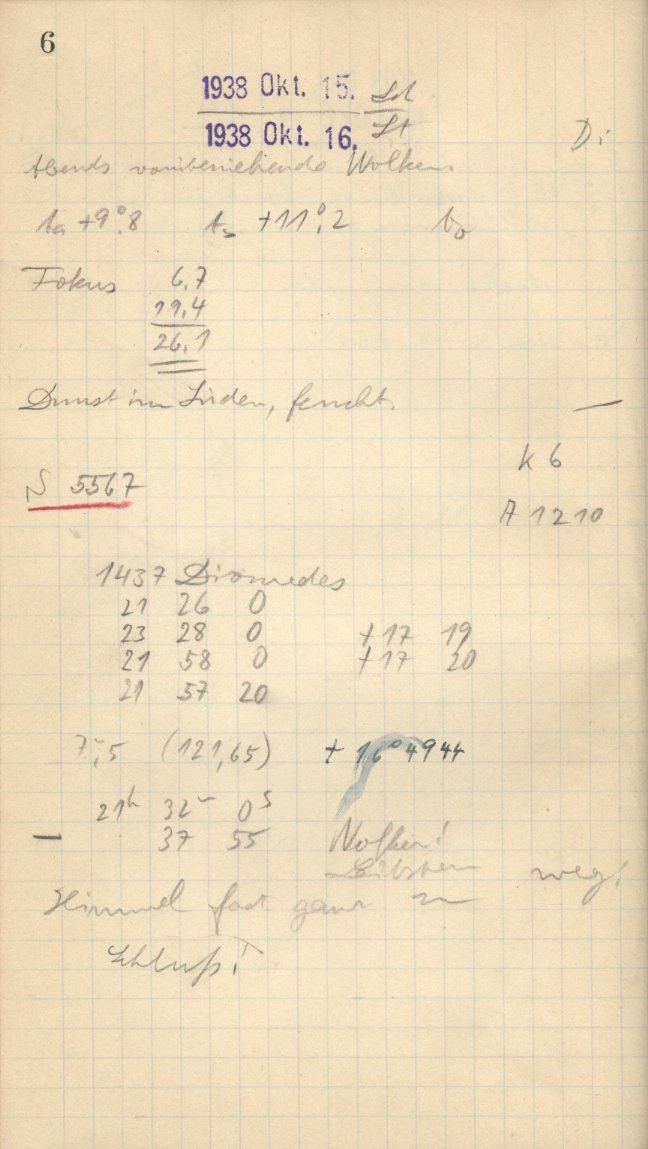 6
1938 Okt. 15.
1938 Okt. 16.
Di
Abends vorüberziehende Wolken.
ta +9°,8 ts +11°,2 to
Fokus 6,7
19,4
26,1
Dunst im Süden, feucht. —
K 6
S 5567
A 1210
1437 Diomedes
21 26 0
23 28 0 +17 19
21 58 0 +17 20
21 57 20
7m,5 (121,65) + 16° 49 44
21h 32m 0s
— 37 55 Wolken!
Leitstern weg!
Himmel fast ganz zu
Schluß!